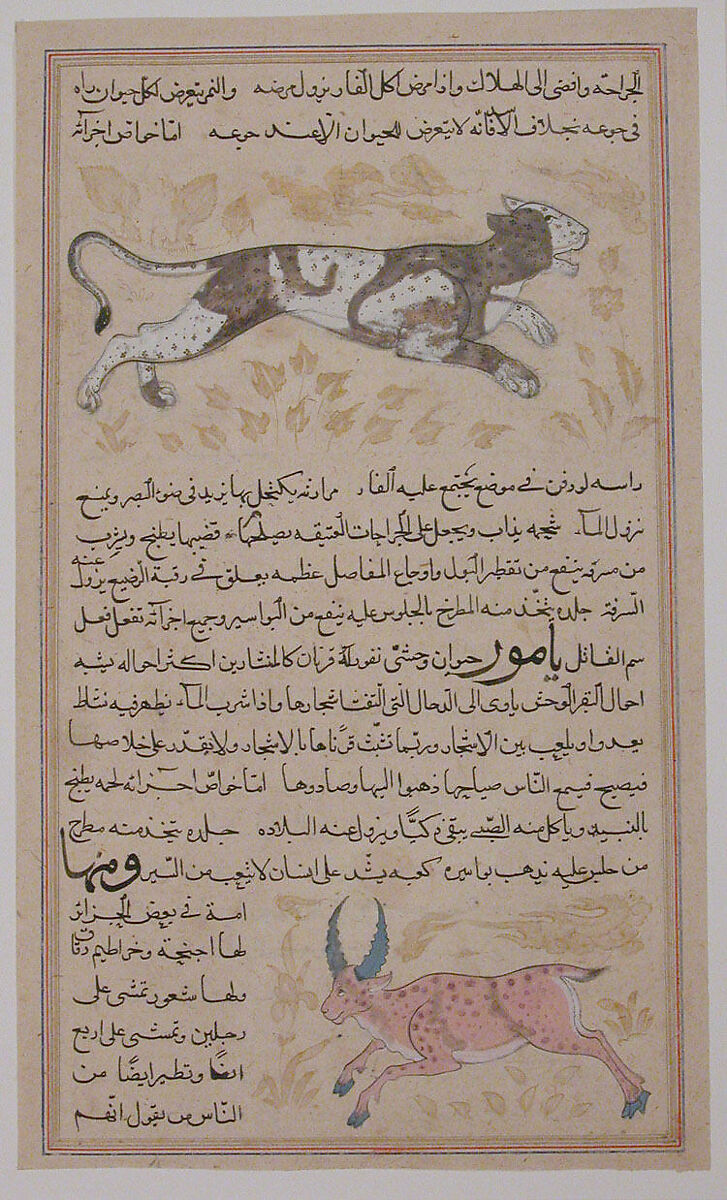 الجراحة وافضى الى الهلاك واذا مرض اكل الفار يزول مرضه والنمر يتعرض لكل حيوان راه
فى جوعه بخلاف الاسد فانه لا يتعرض للحيوان الا عند جوعه اما خواص اجزائه
راسه لو دفن فى موضع يجتمع عليه الفار مرارته يكتحل بها يزيد فى ضوء البصر ويمنع
نزول الماء شحمه يذاب ويجعل على الجراحات العتيقه يصلحها قضيبها يطبخ ويشرب
من مرقه ينفع من تقطير البول واوجاع المفاصل عظمه يعلق فى رقبة الرضيع يزول عنه
السرفة جلده يتخذ منه المطرح بالجلوس عليه ينفع من البواسير وجميع اجزائه تفعل فعل
سم القاتل يامور حيوان وحشى نفور له قرنان كالمنشارين اكثر احواله يشبه
احوال البقر الوحش ياوى الى الدحال التى التفت اشجارها واذا شرب الماء يظهر فيه نشاط
يعدوا ويلعب بين الاشجار وربما تشبث قرناها بالاشجار ولا يقدر على خلاصها
فيصيح فيسمع الناس صياحها ذهبوا اليها وصادوها اما خواص اجزائه لحمه يطبخ
بالنبيد وياكل منه الصبى يبقى ذكيا ويزول عنه البلاده جلده يتخذ منه مطرح
من جلس عليه يذهب بواسيره كعبه يشد على انسان لا يتعب من السير ومنها
امة فى بعض الجزائر
لها اجنحة وخراطيم دقاق
ولها شعور تمشى على
رجلين وتمشى على اربع
ايضا وتطير ايضا من
الناس من يقول انهم